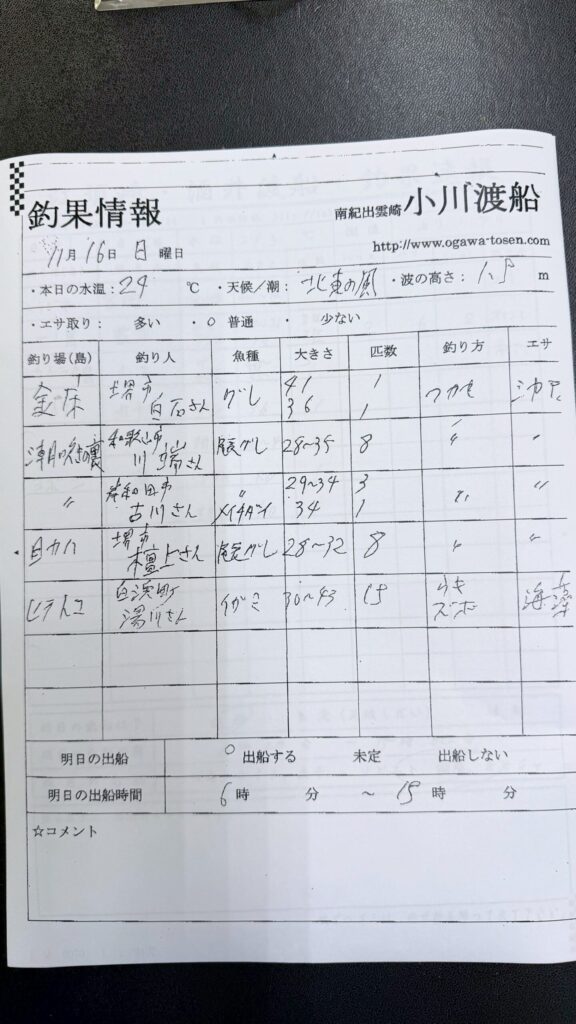 釣果情報
南紀出雲崎 小川渡船
http://www.ogawa-tosen.com
11月 16日 日 曜日
・本日の水温: 24 ℃ ・天候/潮: 北東の風 ・波の高さ: 1.5 m
・エサ取り: 多い ・○ 普通 ・ 少ない
釣り場(島) 釣り人 魚種 大きさ 匹数 釣り方 エサ
堺市 白石さん グレ 41 1 フカセ
36 1
和歌山市 川端さん 尾長グレ 28~35 8 〃 〃
〃 岸和田市 〃 29~34 3 〃 〃
古川さん メイチダイ 34 1
堺市 檀上さん 尾長グレ 28~32 8 〃 〃
白浜町 湯川さん イガミ 30~43 15 ウキ 海藻
ズボ
明日の出船 ○ 出船する 未定 出船しない
明日の出船時間 6 時 分 ~ 15 時 分
☆コメント